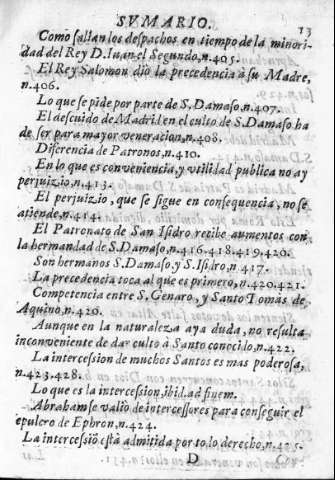 SVMARIO.
13
Como saltan los despachos en tiempo de la minori-
dad del Rey D. Iuan el Segundo, n. 405.
El Rey Salomon diò la precedencia à su Madre,
n. 406.
Lo que se pide por parte de S. Damaso, n. 407.
El descuido de Madrid en el culto de S. Damaso ha
de ser para mayor veneracion, n. 408.
Diferencia de Patronos, n. 410.
En lo que es conveniencia, y vtilidad publica no ay
perjuizio, n. 413.
El perjuizio, que se sigue en consequencia, no se
atiende, n. 414.
El Patronato de San Isidro recibe aumentos con
la hermandad de S. Damaso, n. 416. 418. 419. 420.
Son hermanos S. Damaso, y S. Isidro, n 417.
La precedencia toca al que es primero, n. 420. 421.
Competencia entre S. Genaro, y Santo Tomàs de
Aquino, n. 420.
Aunque en la naturaleza aya duda, no resulta
inconveniente de dar culto à Santo conocido, n. 422.
La intercession de muchos Santos es mas poderosa,
n. 423. 428.
Lo que es la intercession, ibid. ad finem.
Abraham se valiò de intercessores para conseguir el
sepulcro de Ephron, n. 424.
La intercessiõ està admitida por todo derecho, n. 425.
D